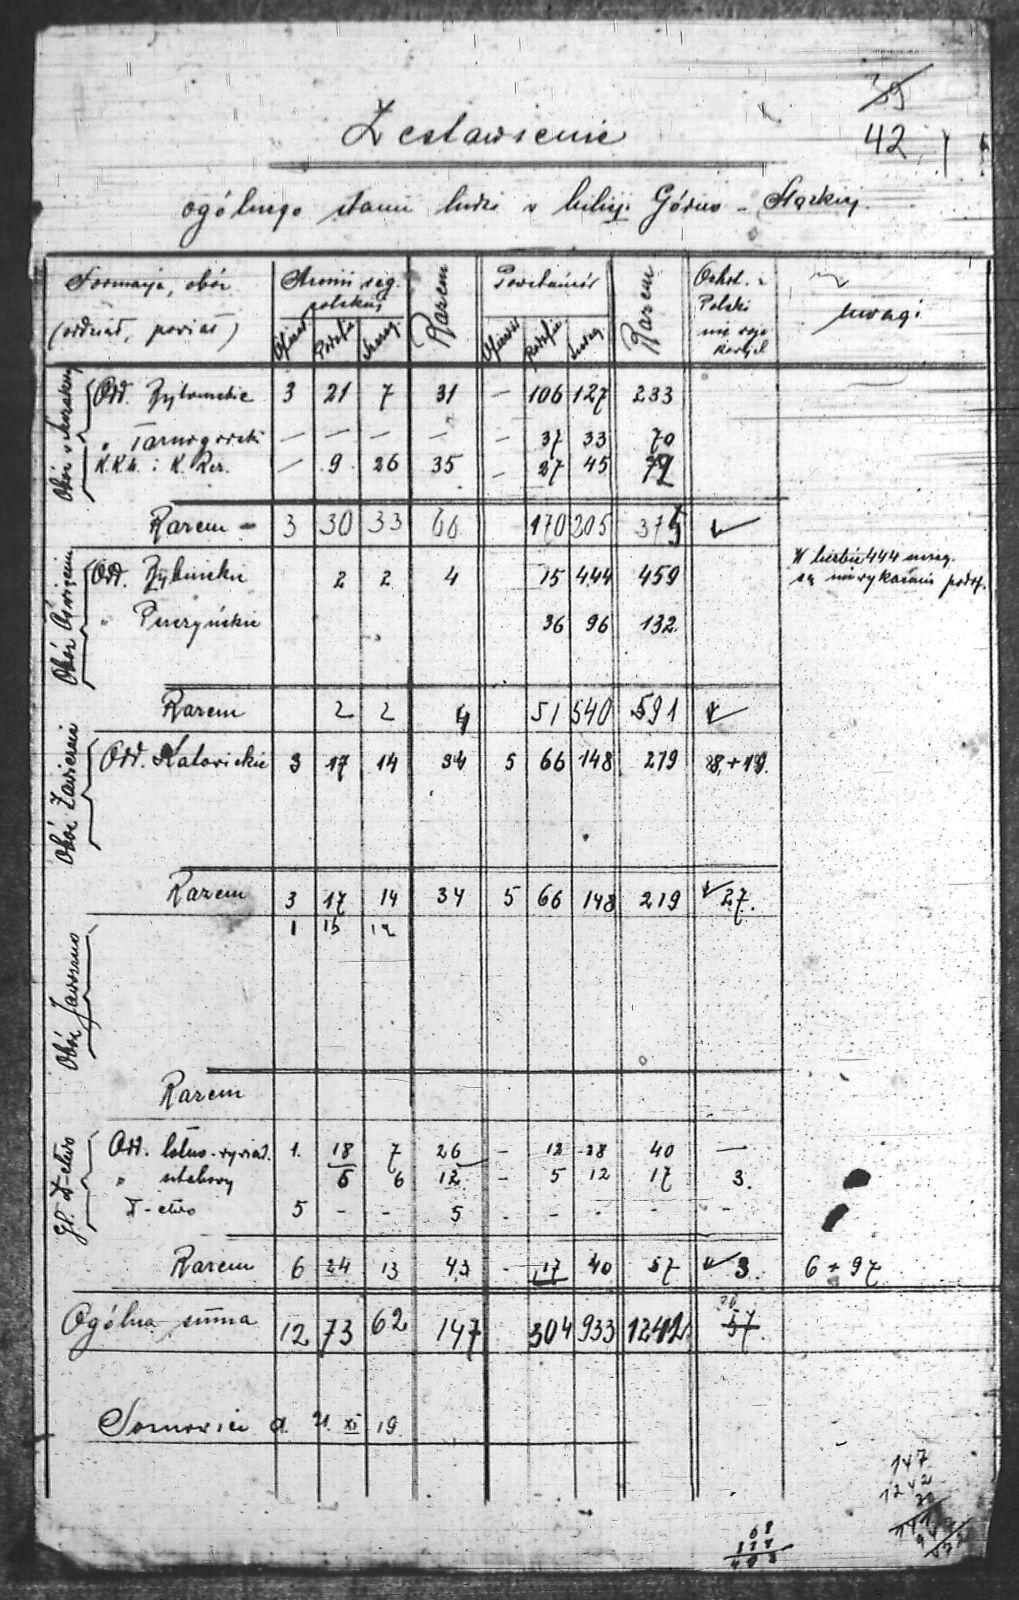 39
42
Zestawienie
ogólnego stanu ludzi w milicji Górno - Śląskiej.
Formacja, obóz
(oddział, powiat)
Armii reg. polskiej
Razem
Powstańców
Razem
Polski
uwagi
Oficer Podofic Szereg Oficer Podofic Szereg
Odd. Bytomskie 3 21 7 31 — 106 127 233
" Tarnogorski — — — — — 37 33 70
K.K.U. i K. Rez. — 9 26 35 — 27 45 72
Razem - 3 30 33 66 170 205 375 ✓
Obóz Oświęcim
Odd. Rybnickie 2 2 4 15 444 459
W liczbie 444 szereg. są niewykazani podof.
" Pszczyńskie 36 96 132
Razem 2 2 4 51 540 591 ✓
Obóz Zawiercie
Odd. Katowickie 3 17 14 34 5 66 148 219 8 + 19
Razem 3 17 14 34 5 66 148 219 ✓ 27.
1 15 12
Obóz Jaworzno
Razem
Gł. D-ctwo
Odd. 1. 18 7 26 — 12 28 40 —
" sztabowy 6 6 12 - 5 12 17 3.
D-ctwo 5 - - 5 - - - - -
Razem 6 24 13 43 - 17 40 57 ✓ 3. 6 + 97
Ogólna suma 12 73 62 147 304 933 1242 30 57
Sosnowiec d. 21 XI 19
147
1242